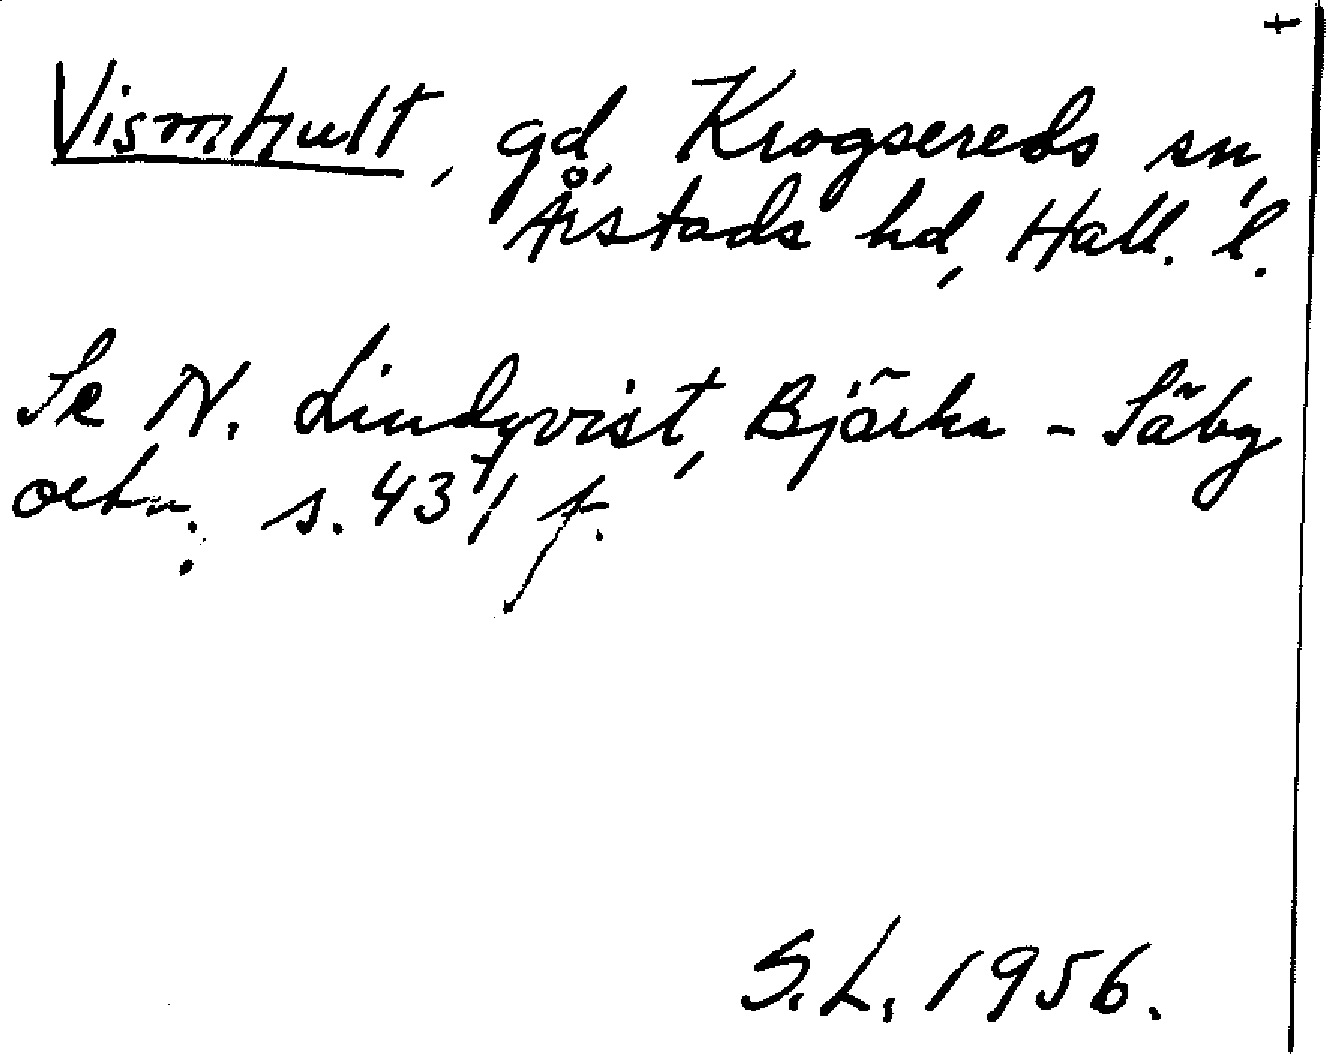 t
Vismhult, gd, Krogsereds sn,
Årstads hd, Hall. l.
Se N. Lindqvist, Bjärka-Säby
ortn. s. 431 f.
S.L. 1956.